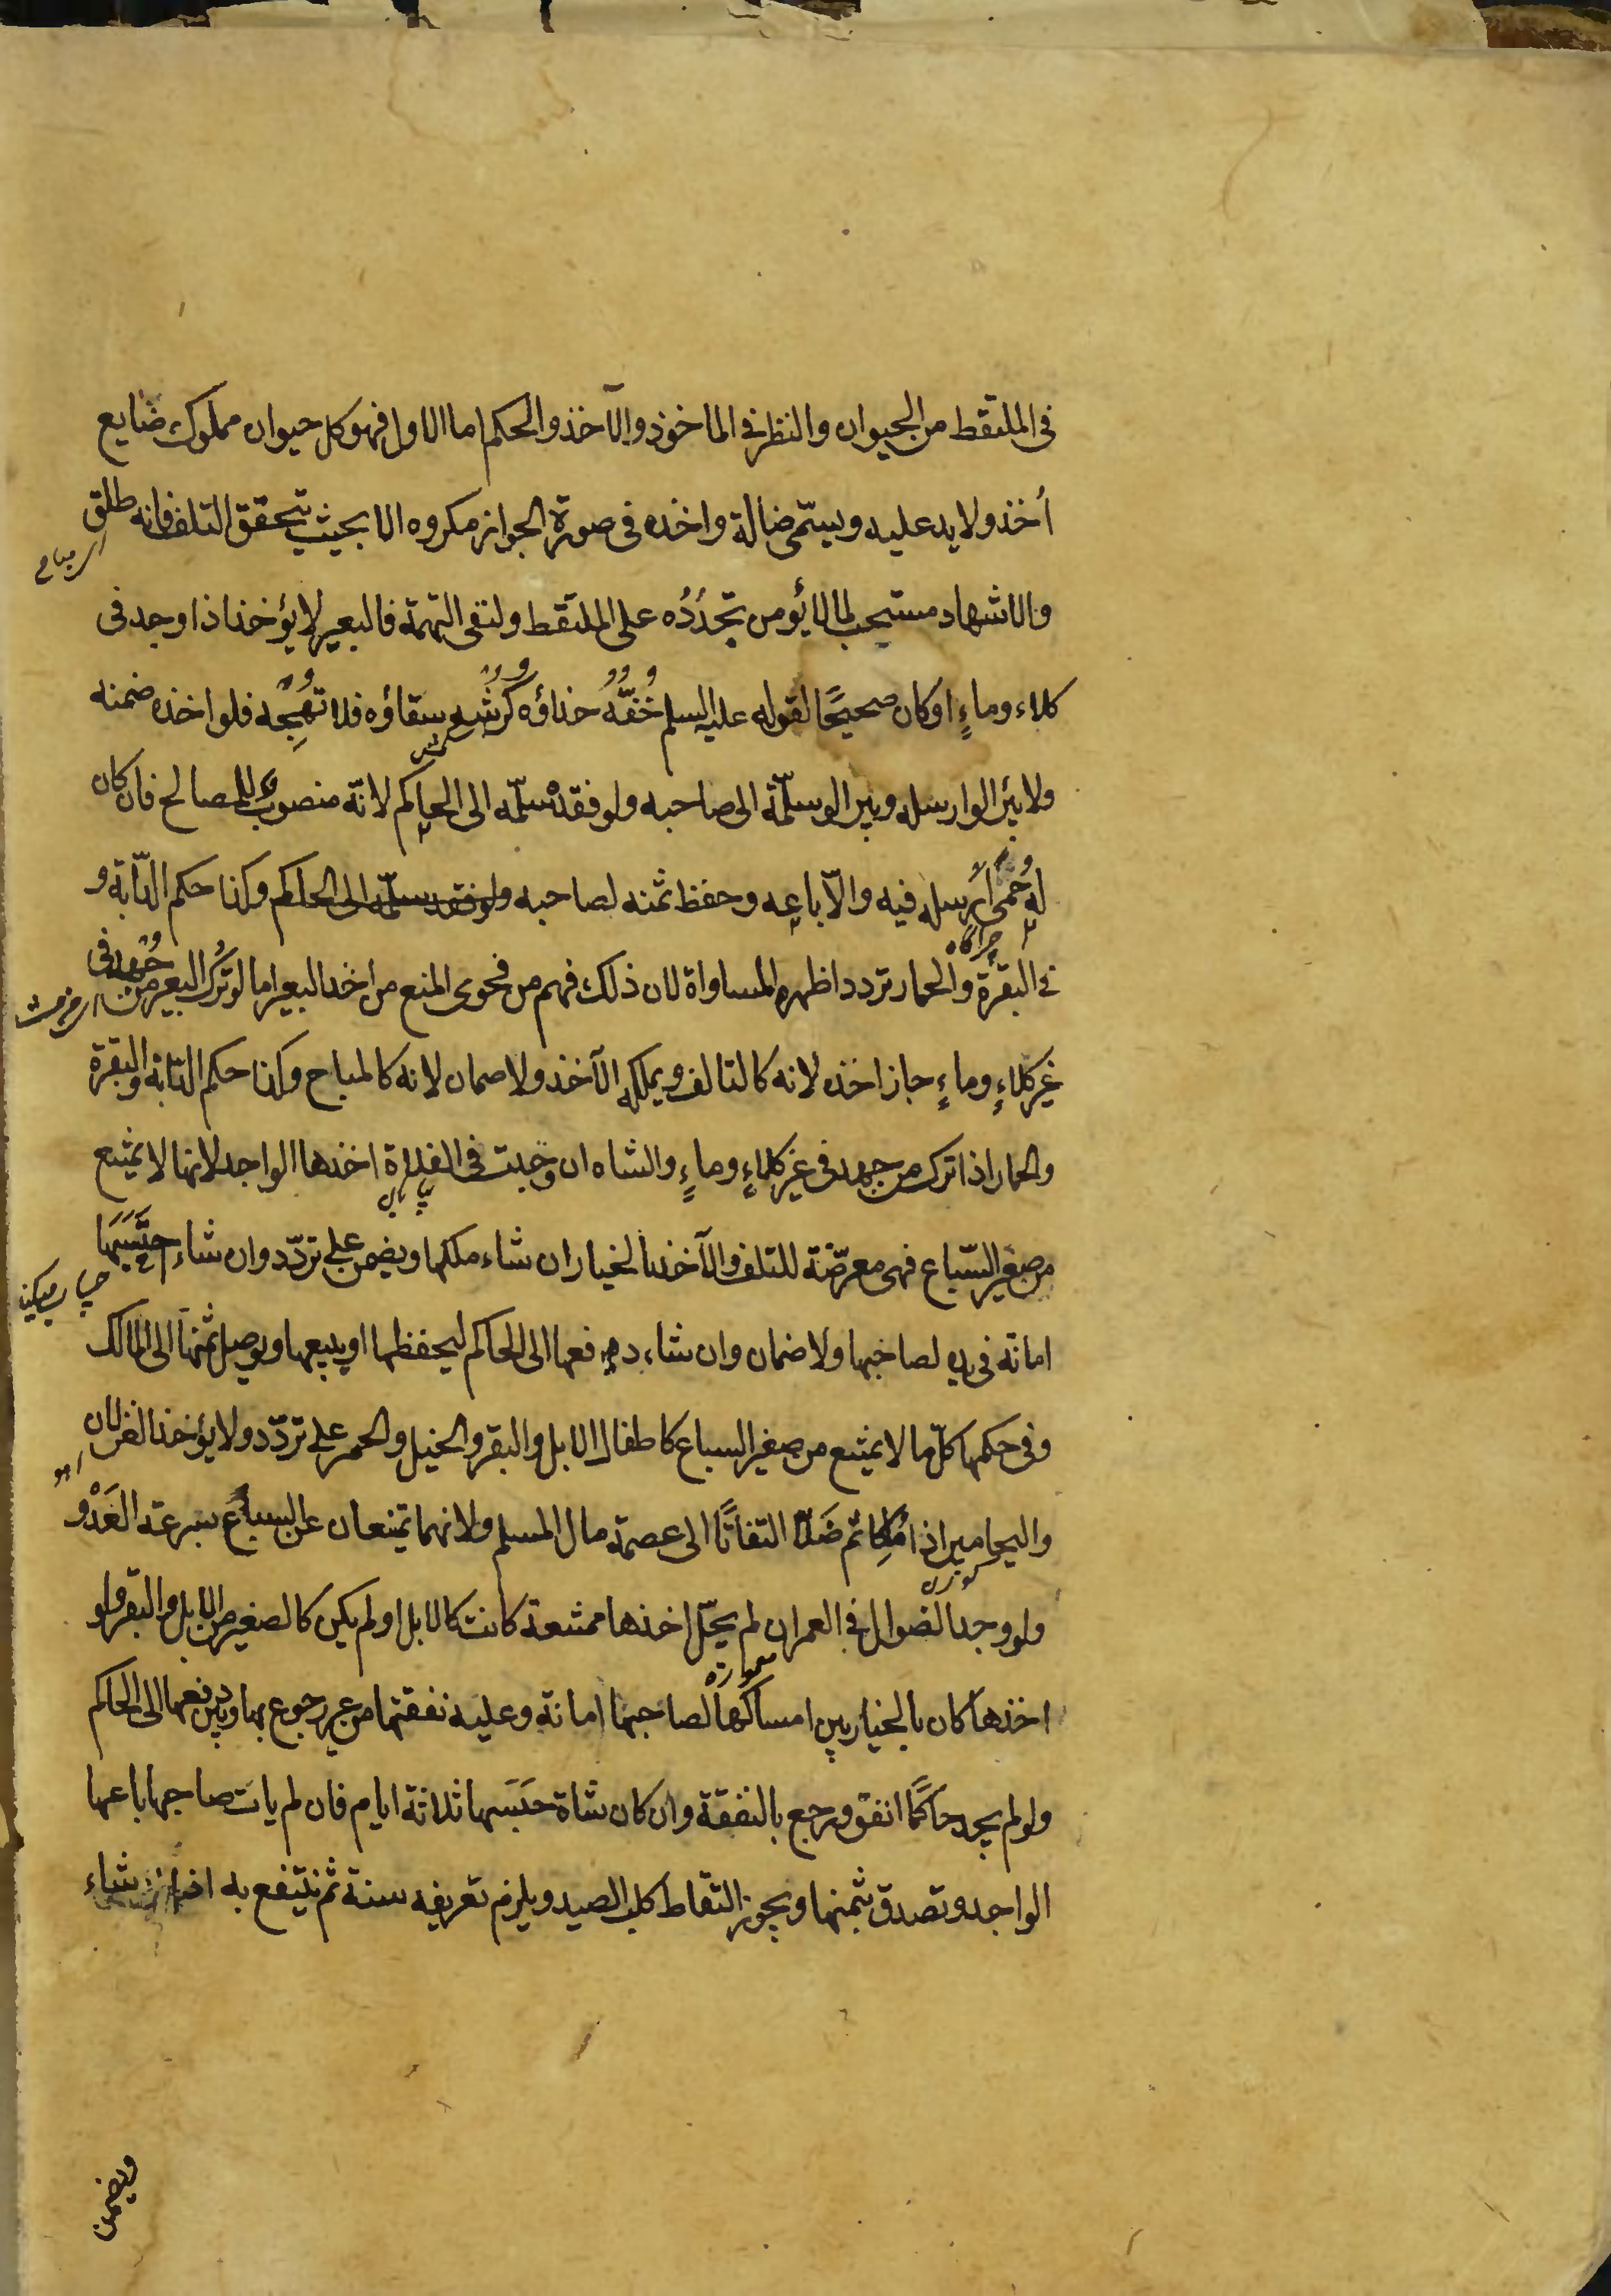 في الملتقط من الحيوان والنظر في الماخوذ والآخذ والحكم اما الاول فهو كل حيوان مملوك ضايع
أخذ ولا يد عليه ويسمّى ضالة واخذه في صورة الجواز مكروه الا بحيث يتحقق التلف فانه طلق
اى مباح
والاشهاد مستحب لما لا يؤمن تجدّده على الملتقط ولنفى التهمة فالبعير لا يؤخذ اذا وجد فى
كلاء وماءٍ او كان صحيحًا لقوله عليه السلم خُفّهُ حذاؤه كرشه سقاؤه فلا تهِجه فلو اخذه ضمنه
ولا يبرا لو ارسله ويبرا لو سلّمه الى صاحبه ولو فقد سلّمه الى الحاكم لانّه منصوب للمصالح فان كان
له حُمىً أرسله فيه والّا باعه وحفظ ثمنه لصاحبه ولو فقد سلّمه الى الحاكم وكذا حكم الدّابة و
چراگاه
فى البقرة والحمار تردد اظهره المساواة لان ذلك فهم من فحوى المنع من اخذ البعير اما لو ترك البعير من جُهد فى
غير كلاءٍ وماءٍ جاز اخذه لانه كالتالف ويملكه الآخذ ولا ضمان لانه كالمباح وكذا حكم الدابة والبقرة
والحمار اذا ترك من جهد فى غير كلاءٍ وماءٍ والشاه ان وجبت فى الفلاة اخذها الواجد لانها لا تمتنع
بيابان
من صغير السّباع فهى معرّضة للتلف والآخذ بالخيار ان شاء ملكها ويضمن على تردّد وان شاء احتسبها
امانة فى يده لصاحبها ولا ضمان وان شاء دفعها الى الحاكم ليحفظها او يبيعها ويوصل ثمنها الى المالك
وفى حكمها كلّ ما لا يمتنع من صغير السباع كاطفال الابل والبقر والخيل والحمر على تردّد ولا يؤخذ الغزلان
اهو
واليحامير اذا مُلكا ثم ضَلّا التفاتًا الى عصمة مال المسلم ولانهما يمتنعان عن السباع بسرعة العَدْو
كوزن
ولو وجد الضوال فى العمران لم يحلّ اخذها ممتنعة كانت كالابل او لم يكن كالصغير من الابل والبقر ولو
معموره
اخذها كان بالخيار بين امساكها لصاحبها امانة وعليه نفقتها من غير رجوع بها وبين دفعها الى الحاكم
ولو لم يجد حاكمًا انفق ورجع بالنفقة وان كان شاة حَبَسَها ثلاثة ايام فان لم يات صاحبها باعها
الواجد وتصدق بثمنها ويجوز التقاط كلب الصيد ويلزم تعريفه سنة ثم ينتفع به ان شاء
ويضمن